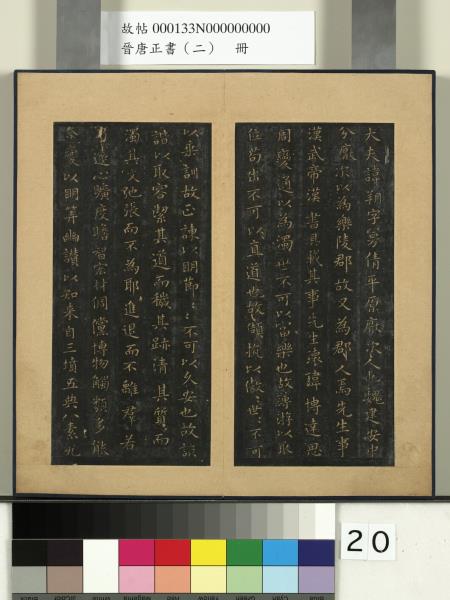 故帖 000133N000000000
晉唐正書（二） 冊
大夫諱朔字曼倩平原厭次人也魏建安中
分厭次以為樂陵郡故又為郡人焉先生事
漢武帝漢書具載其事先生瑋博達思
周變通以為濁世不可以富樂也故薄游以取
位苟出不可以直道也故頡抗以傲世〻不可
以垂訓故正諫以明節〻不可以久安也故詼
諧以取容絜其道而穢其跡清其質而
濁其文弛張而不為耶進退而不離群若
乃遠心曠度贍智宏材倜儻博物觸類多能
合變以明筭幽讃以知來自三墳五典八素九
20
Black
White
Magenta
Red
Yellow
Green
Cyan
Blue